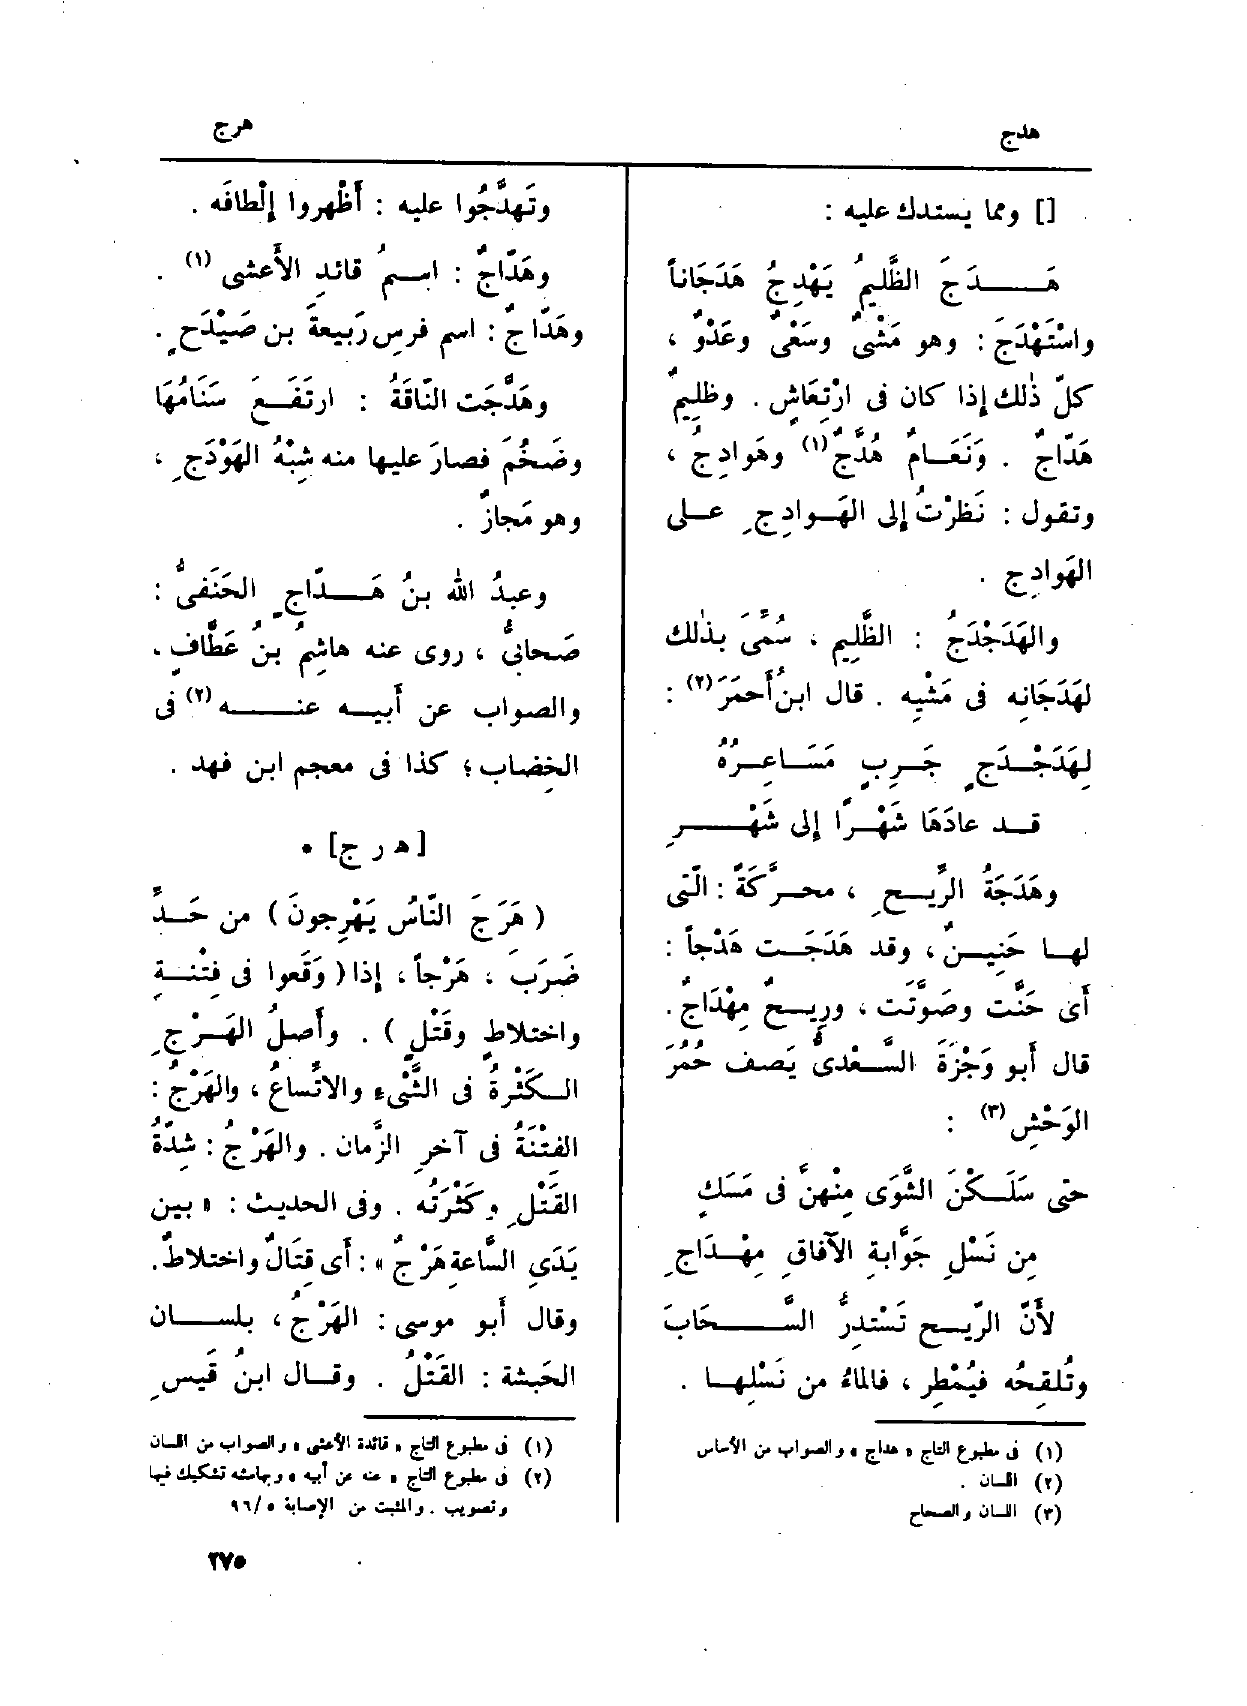 هدج
هرج
[] ومما يستدك عليه :
هَــدَجَ الظَّلِيمُ يَهْدِجُ هَدَجَاناً
واسْتَهْدَجَ : وهو مَشْىٌ وسَعْىٌ وعَدْوٌ ،
كلّ ذٰلك إذا كان فى ارْتِعَاشٍ . وظَلِيمٌ
هَدّاجٌ . ونَعَـامٌ هُدَّجٌ (١) وهَوادِجُ ،
وتقول : نَظرْتُ إلى الهَـوادِجِ عـلى
الهَوادِج .
والهَدَجْدَجُ : الظَّلِيم ، سُمِّىَ بذٰلك
لهَدَجَانِه فى مَشْيِه . قال ابنُ أَحمَرَ (٢) :
لِهَدَجْـدَجٍ جَـرِبٍ مَسَـاعِـرُهُ
قـد عادَهَا شَهْـرًا إلى شَهْـــرِ
وهَدَجَةُ الرِّيـحِ ، محرَّكَةً : الَّتى
لهـا حَنِيـنٌ ، وقد هَدَجَـت هَدْجاً :
أَى حَنَّت وصَوَّتَت ، ورِيـحٌ مِهْدَاجٌ .
قال أَبو وَجْزَةَ السَّـعْدىُّ يَصف حُمُرَ
الوَحْشِ (٣) :
حتى سَلَـكْنَ الشَّوَى مِنْهنَّ فى مَسَكٍ
مِن نَسْلِ جَوَّابةِ الآفاقِ مِهْـدَاجِ
لأَنّ الرِّيـح تَسْتدِرُّ السَّــحَابَ
وتُلقِحُه فيُمْطِر ، فالماءُ من نَسْلِهـا .
(١) فى مطبوع التاج « هداج » والصواب من الأساس
(٢) اللسان .
(٣) اللسان والصحاح
وتَهدَّجُوا عليه : أَظْهروا إلْطافَه .
وهَدّاجٌ : اسـمُ قائدِ الأَعشى (١) .
وهَدّاجٌ : اسم فرسِ رَبيعةَ بن صَيْدَحٍ .
وهَدَّجَت النّاقَةُ : ارتَفَـعَ سَنَامُهَا
وضَخُمَ فصارَ عليها منه شِبْهُ الهَوْدَجِ ،
وهو مَجازٌ .
وعبدُ الله بنُ هَــدّاجٍ الحَنَفىُّ :
صَحابىٌّ ، روى عنه هاشِمُ بنُ عَطَّافٍ .
والصواب عن أَبيـه عنـــه (٢) فى
الخِضاب ؛ كذا فى معجم ابن فهد .
[ هـ ر ج ] *
( هَرَجَ النّاسُ يَهْرِجونَ ) من حَـدِّ
ضَرَبَ ، هَرْجاً ، إذا ( وَقَعوا فى فِتْنـة
واختلاطٍ وقَتْلٍ ) . وأَصلُ الهَـرْجِ
الـكَثْرةُ فى الشَّىْءِ والاتِّساعُ ، والهَرْجُ :
الفِتْنَةُ فى آخرِ الزَّمان . والهَرْجُ : شِدّةُ
القَتْلِ وكَثْرَتُه . وفى الحديث : « بين
يَدَىِ السَّاعةِ هَرْجٌ » : أَى قِتَالٌ واختلاطٌ .
وقال أَبو موسى : الهَرْجُ ، بلسـان
الحَبشة : القَتْلُ . وقـال ابنُ قَيسِ
(١) فى مطبوع التاج « قائدة الأعشى » والصواب من اللسان
(٢) فى مطبوع التاج « عنه عن أبيه » وبهامشه تشكيك فيها
وتصويب . والمثبت من الإصابة ٩٦/٥
٢٧٥